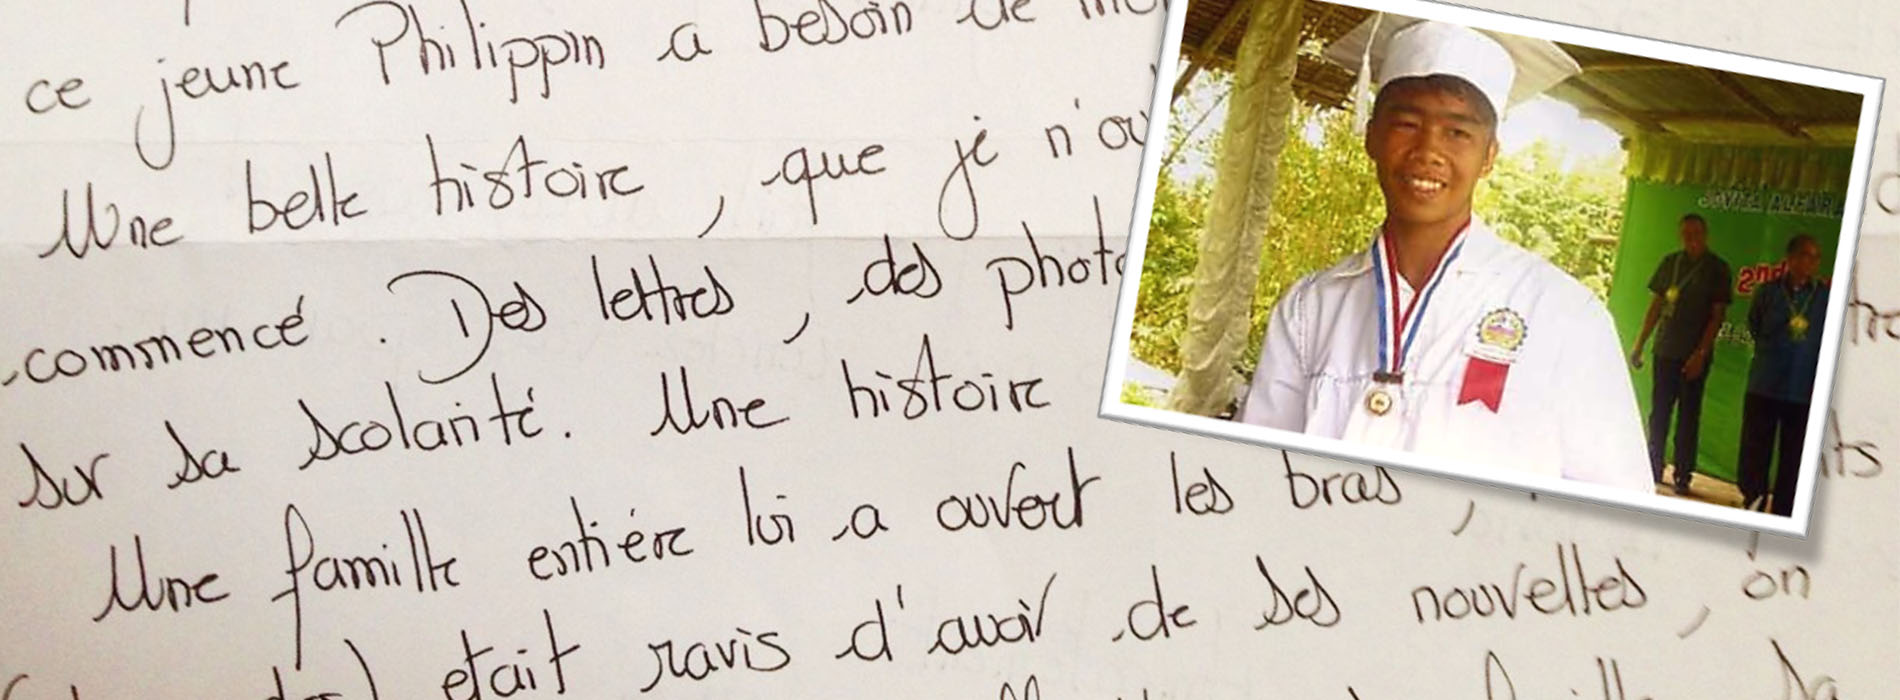 ce jeune Philippin a besoin de
Une belle histoire, que je
commencé. Des lettres, des
sur sa scolarité. Une histoire
Une famille entière lui a ouvert les bras,
etait ravis d'avoir de ses nouvelles, on
2nd